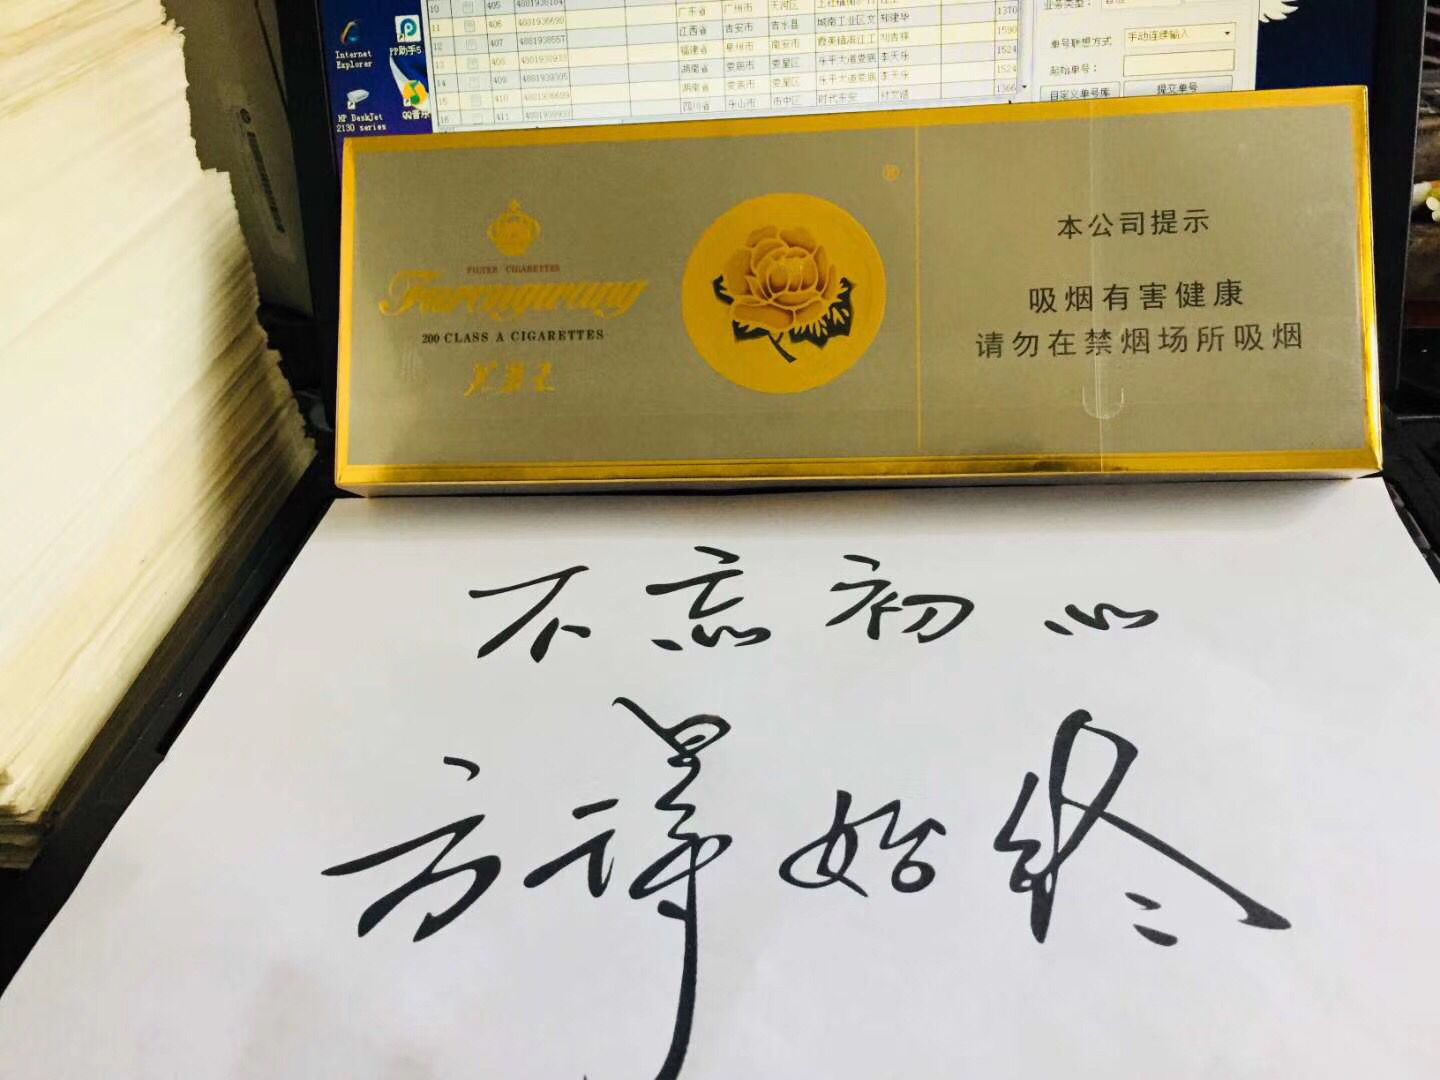 Internet
Explorer
PP助手5
HP DeskJet
2130 series
QQ音乐
10 405 4881938184 广东省 广州市 天河区
11 406 4881938690 江西省 吉安市 吉水县 城南工业区文 郑建华 1370
12 407 4881938557 福建省 泉州市 南安市 1590
13 408 湖南省 娄底市 娄星区 乐平大道娄底 李天乐 1524
14 409 湖南省 娄底市 娄星区 乐平大道娄底 李天乐 1524
15 410 四川省 乐山市 市中区 1366
16 411
业务类型：
单号联想方式 手动连续输入
起始单号：
自定义单号库 提交单号
FILTER CIGARETTES
Furongwang
200 CLASS A CIGARETTES
芙蓉王
本公司提示
吸烟有害健康
请勿在禁烟场所吸烟
不忘初心
方得始终